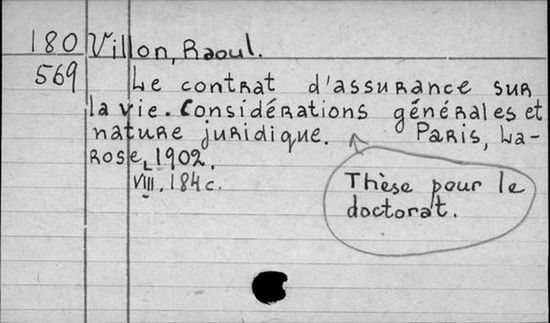 180 Villon, Raoul.
569 Le contrat d'assurance sur
la vie. Considérations générales et
nature juridique. Paris, La-
rose, 1902.
VIII, 184 c.
Thèse pour le
doctorat.